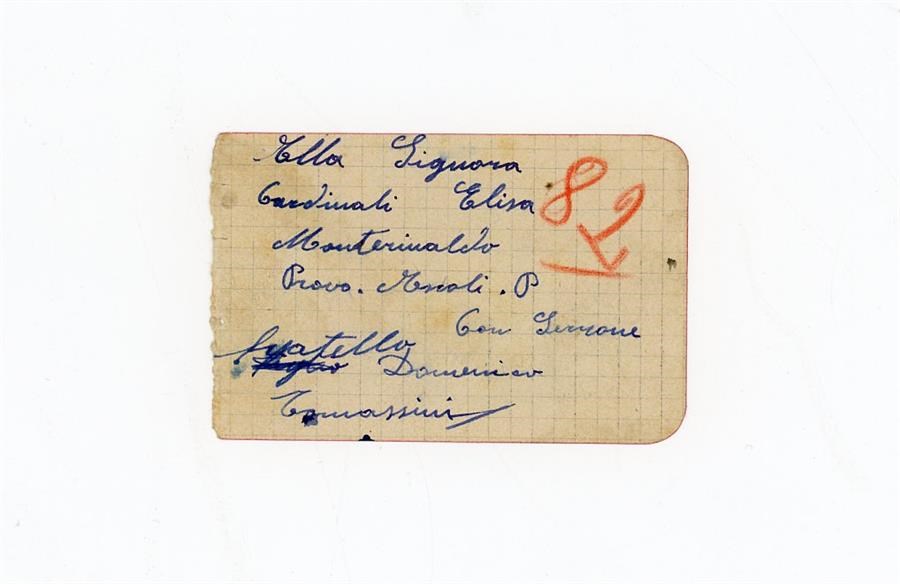 Alla Signora
Cardinali Elisa
82
Monterinaldo
Prov. Ascoli. P
Con Servone
fratello
figlio Domenico
Tomassini